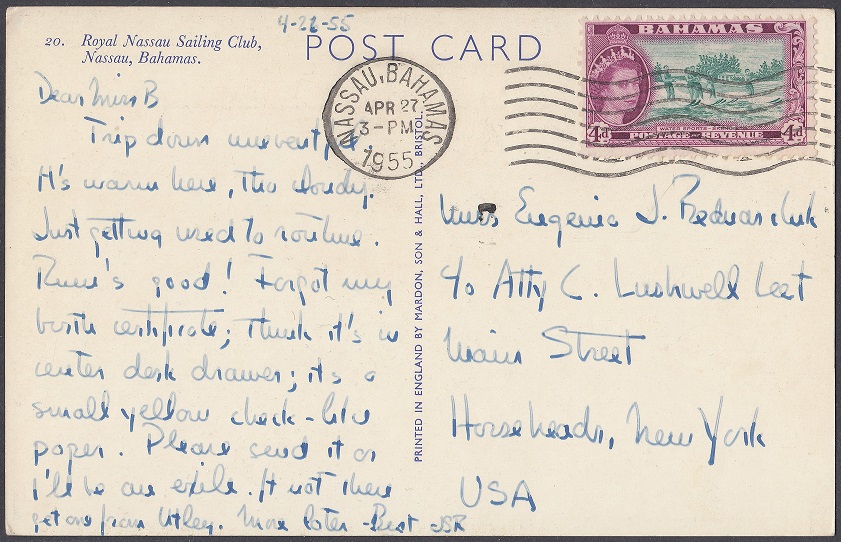 4-22-55
20. Royal Nassau Sailing Club,
Nassau, Bahamas.
POST CARD
BAHAMAS
4d 4d
POSTAGE & REVENUE
NASSAU, BAHAMAS
APR 27
3 - PM
1955
Dear Miss B
Trip down uneventful.
It's warm here, tho cloudy.
Just getting used to routine.
Rum's good! Forgot my
birth certificate; think it's in
center desk drawer; its a
small yellow check-like
paper. Please send it or
I'll be an exile. If not there
get one from Utley. More later - Best JSR
PRINTED IN ENGLAND BY MARDON, SON & HALL, LTD., BRISTOL.
Miss Eugenia J.
c/o Atty C.
Main Street
Horseheads, New York
USA